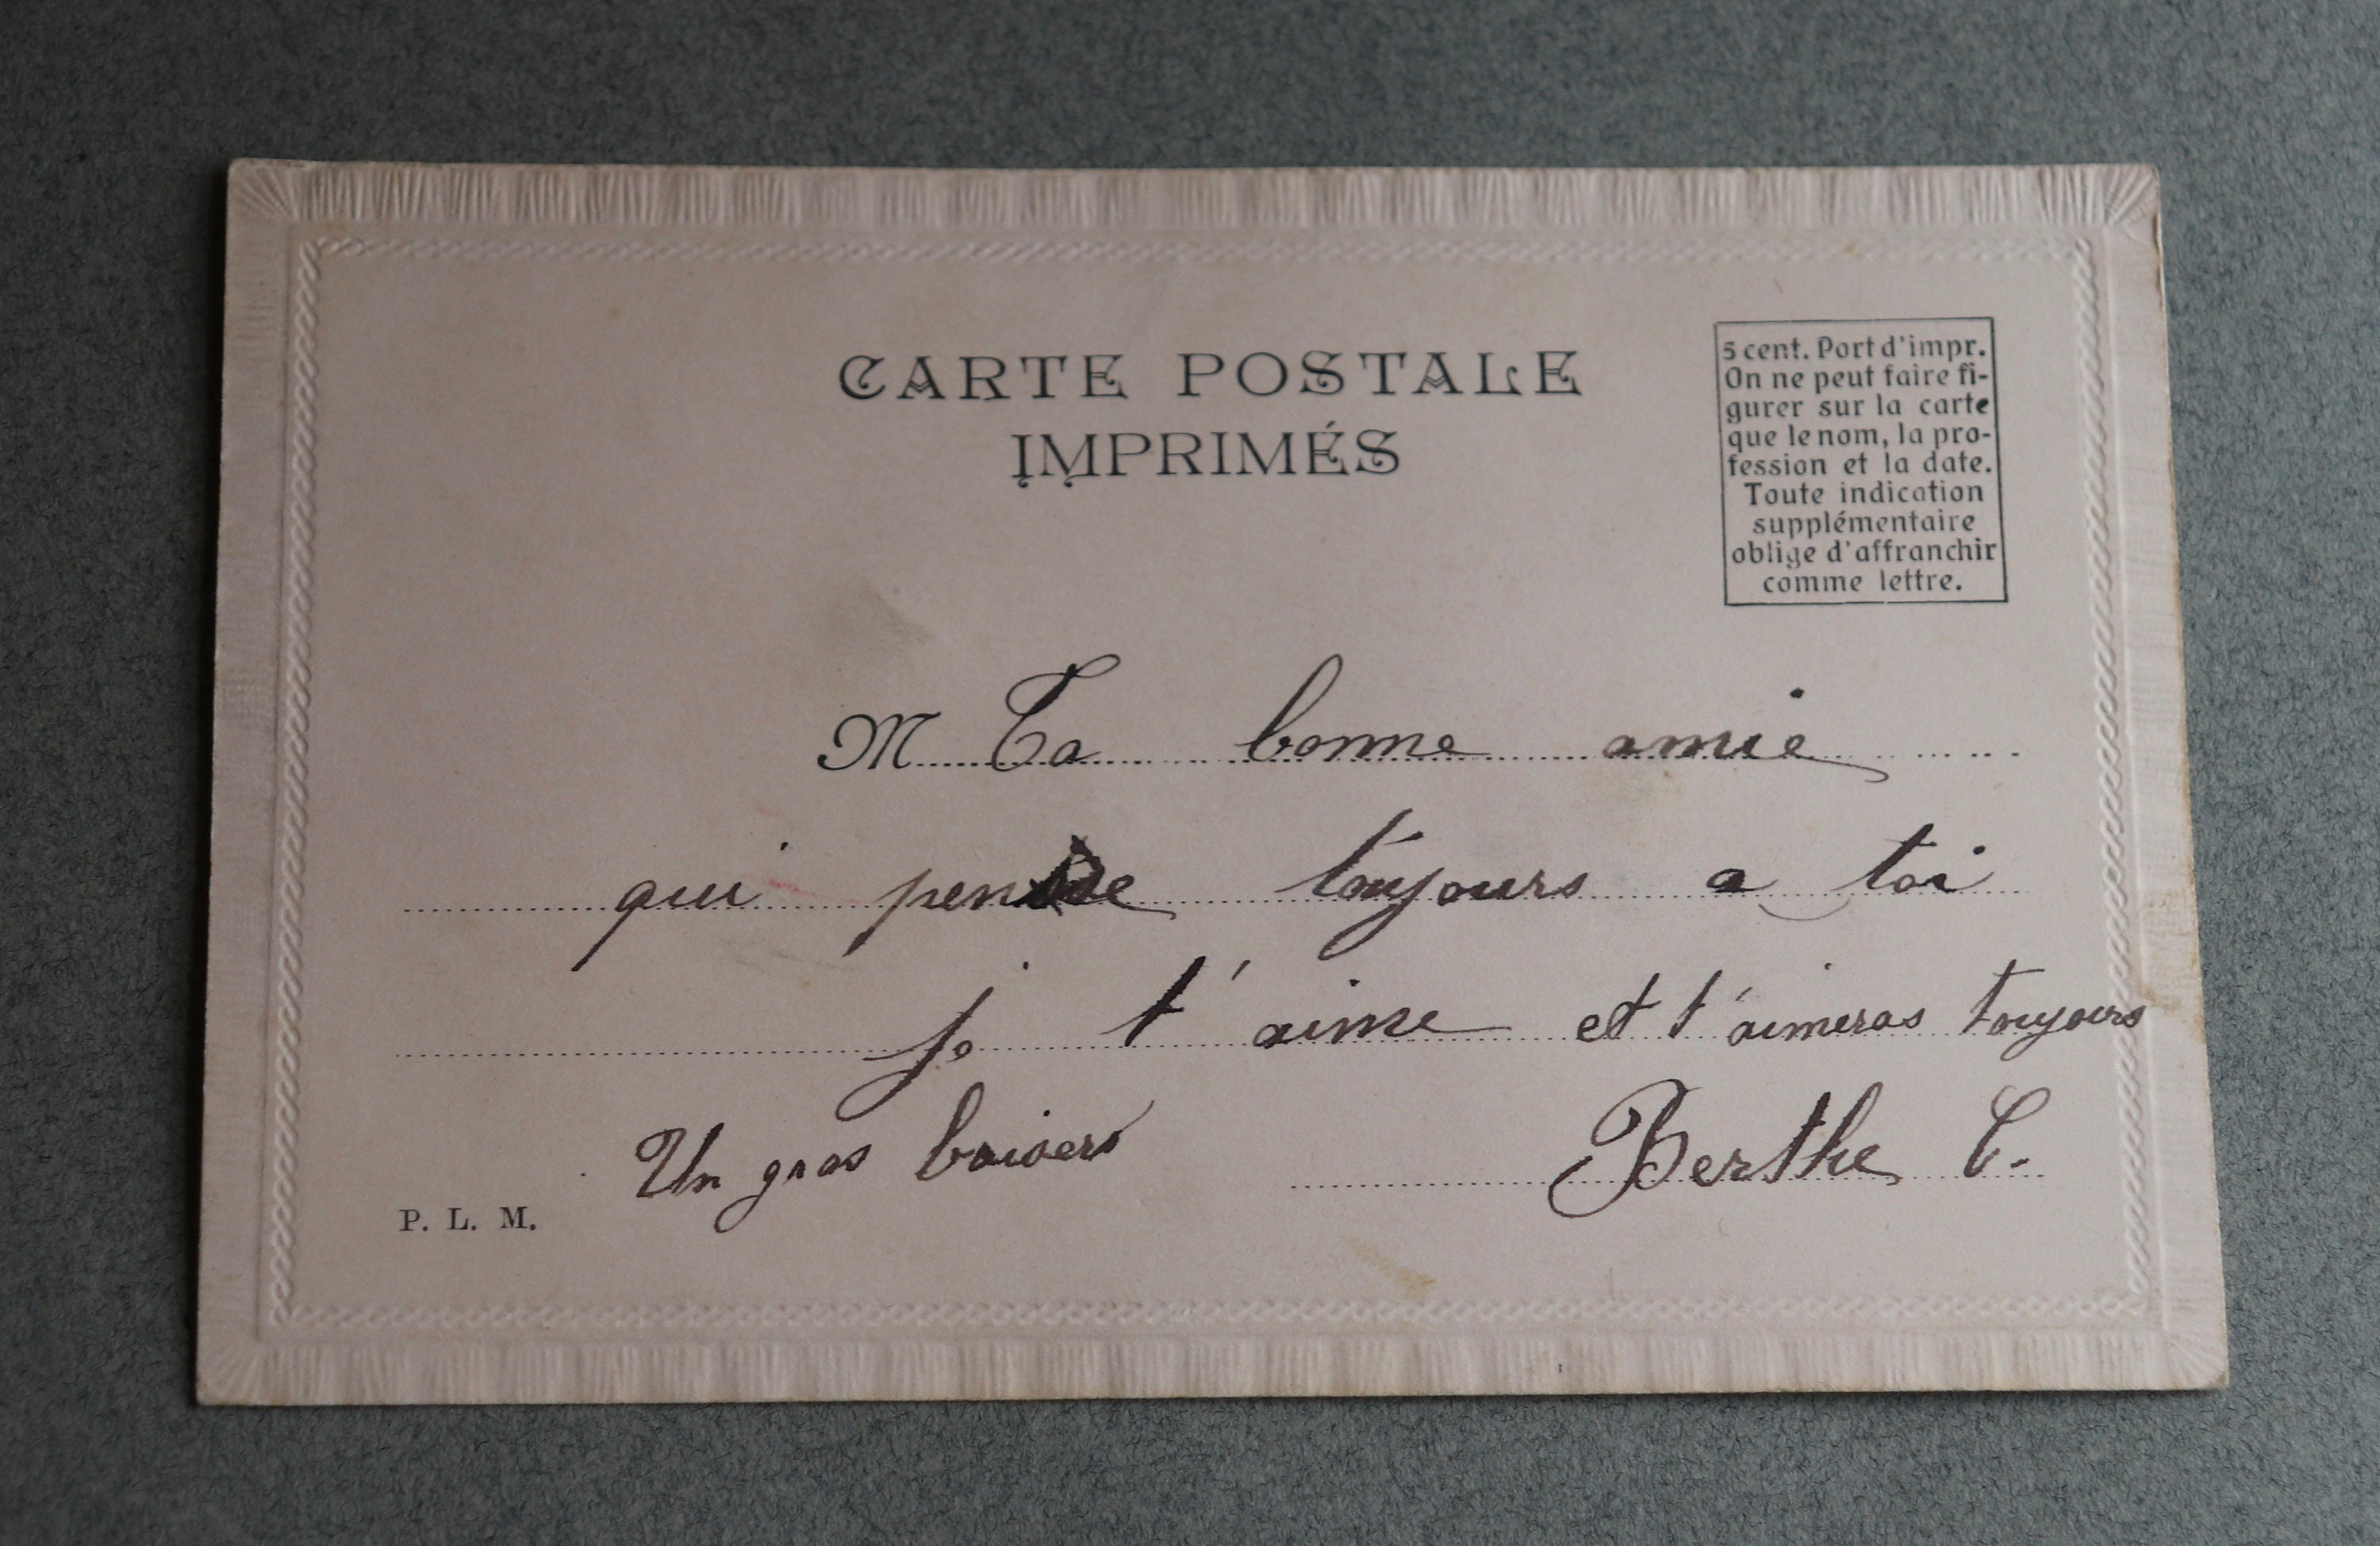 CARTE POSTALE
IMPRIMÉS
5 cent. Port d'impr.
On ne peut faire fi-
gurer sur la carte
que le nom, la pro-
fession et la date.
Toute indication
supplémentaire
oblige d'affranchir
comme lettre.
M Ta bonne amie
qui pense toujours a toi
je t'aime et t'aimeras toujours
Un gros baisers
Berthe C.
P. L. M.